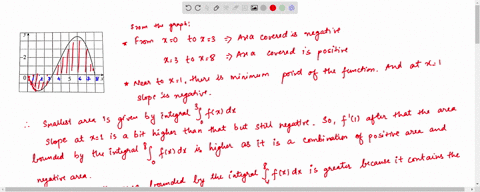 From the graph:
* From x=0 to x=3 ⇒ Area covered is negative
x=3 to x=8 ⇒ Area covered is positive
* Near to x=1, there is minimum point of the function. And at x=1
slope is negative.
∴ Smallest area is given by integral ∫₀³ f(x) dx
Slope at x=1 is a bit higher than that but still negative. So, f'(1) after that the area
bounded by the integral ∫₀⁸ f(x) dx is higher as it is a combination of positive area and
negative area.
bounded by the integral f(x) dx is greater because it contains the